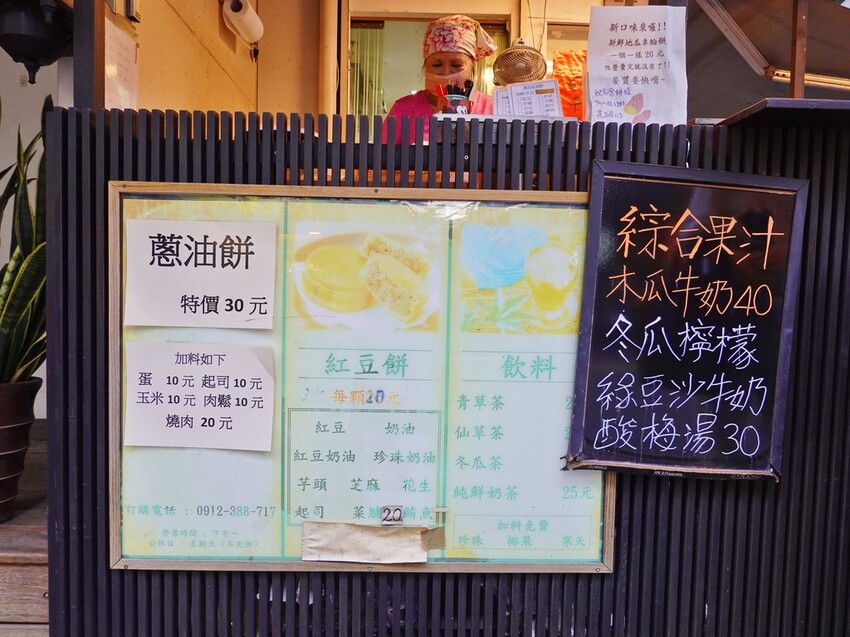 新口味來囉!!
新鮮地瓜車輪餅
一個一樣20元
要買要快唷~
蔥油餅
特價 30 元
加料如下
蛋 10 元 起司 10 元
玉米 10 元 肉鬆 10 元
燒肉 20 元
訂購電話：0912-388-717
營業時間：下午~
紅豆餅
每顆20元
紅豆 奶油
紅豆奶油 珍珠奶油
芋頭 芝麻 花生
起司 菜脯 鮪魚
20
飲料
青草茶
仙草茶
冬瓜茶
純鮮奶茶 25元
加料免費
珍珠 椰果 寒天
綜合果汁
木瓜牛奶40
冬瓜檸檬
綠豆沙牛奶
酸梅湯30